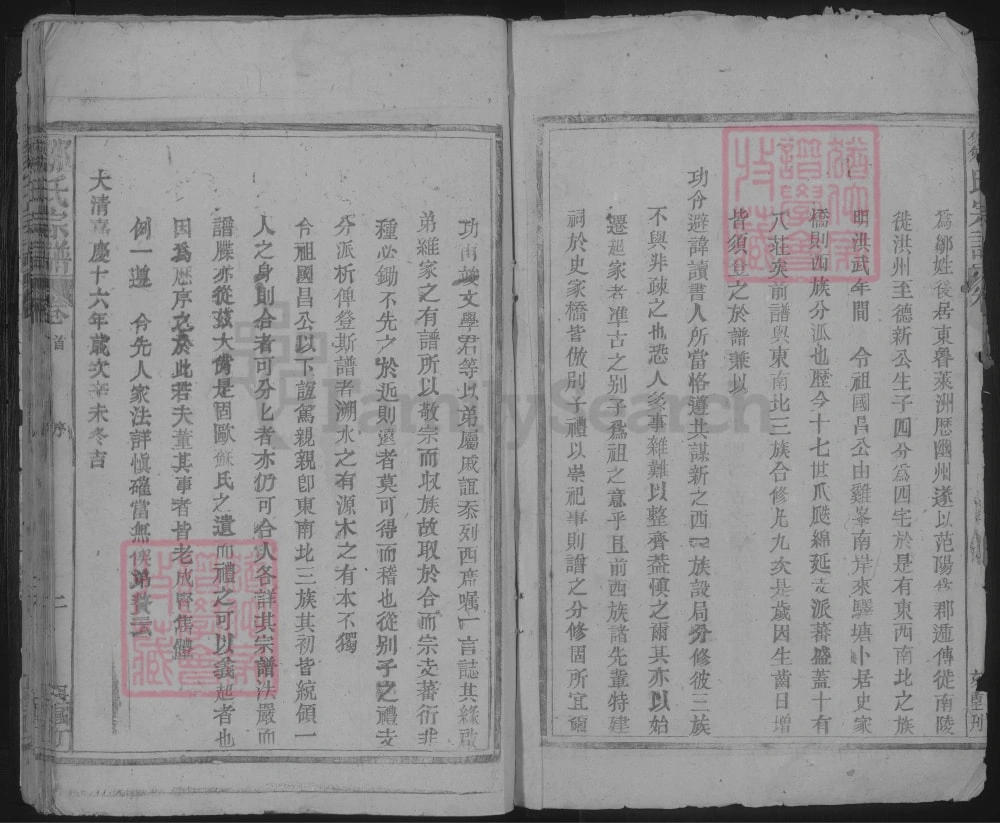 為鄒姓後居東魯萊洲歷豳州遂以范陽為郡遞傳從南陵
從洪州至德新公生子四分為四宅於是有東西南北之族
明洪武年間 令祖國昌公由雞峯南岸來驛塘卜居史家
橋則西族分派也歷今十七世瓜瓞綿延支派蕃盛蓋十有
八莊矣前譜與東南北三族合修九次是歲因生齒日增
皆須登之於譜兼以
功令避諱讀書人所當恪遵共謀新之西族設局分修彼三族
不與非疎之也恐人多事雜難以整齊葢慎之爾其亦以始
遷起家者准古之别子為祖之意乎且前西族諸先輩特建
祠於史家橋皆倣別子禮以崇祀事則譜之分修固所宜爾
功甫竣文學君等以弟屬戚誼忝列西席囑一言誌其緣啟
弟維家之有譜所以敬宗而収族故取於合而宗支蕃衍非
種必鋤不先之於近則遠者莫可得而稽也從别子之禮支
分派析俾登斯譜者溯水之有源木之有本不獨
令祖國昌公以下誼篤親親卽東南北三族其初皆統領一
人之身則合者可分匕者亦仍可合人各詳其宗譜法嚴而
譜牒亦從兹大備是固歐蘇氏之遺而禮之可以義起者也
因爲歷序之於此若夫董其事者皆老成賢雋體
例一遵 令先人家法詳慎確當無俟弟贅云
大清嘉慶十六年歲次辛未冬吉
鄒氏宗譜 卷首 序 二
FamilySearch